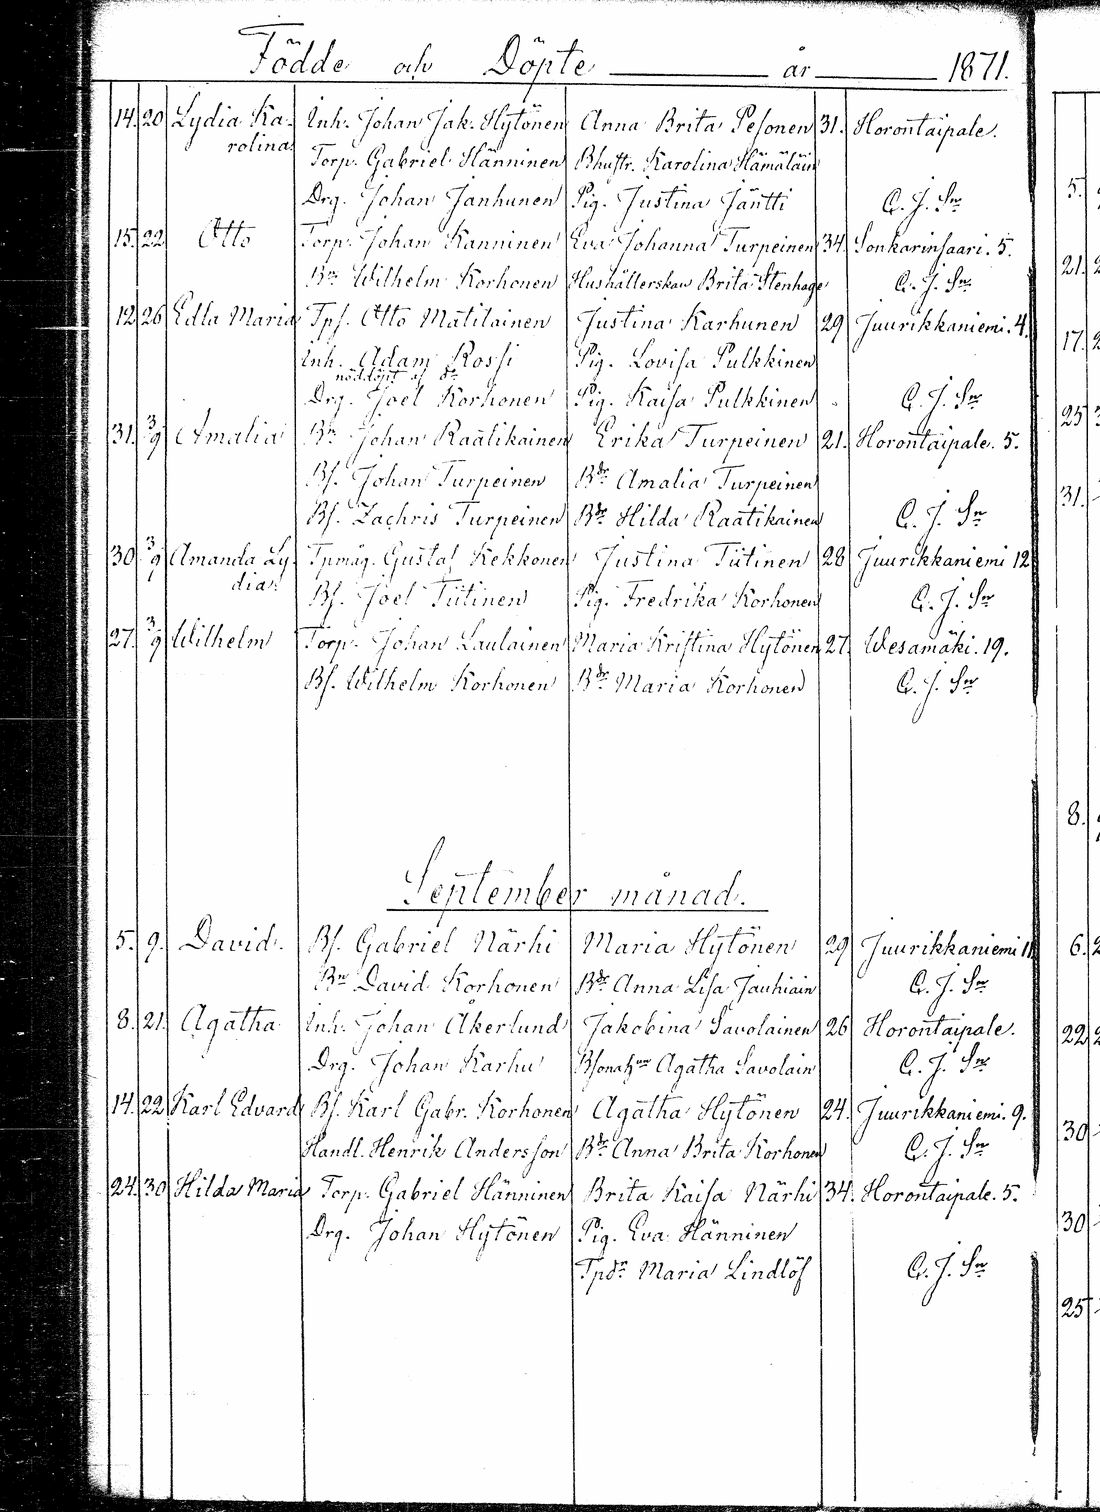 Födde och Döpte år 1871.
14. 20 Lydia Ka- Inh. Johan Jak. Hytönen Anna Brita Pesonen 31. Horontaipale.
rolina Torp. Gabriel Hänninen Bhustr. Karolina Hämäläin
Drg. Johan Janhunen Pig. Justina Jäntti C. J. Sn
15. 22 Otto Torp. Johan Kanninen Eva Johanna Turpeinen 34. Sonkarinsaari. 5.
Bn Wilhelm Korhonen Hushållerskan Brita Stenhage C. J. Sn
12 26 Edla Maria Tps. Otto Matilainen Justina Karhunen 29 Juurikkaniemi. 4.
Inh. Adam Rossi Pig. Lovisa Pulkkinen
nöddöpt af
Drg. Joel Korhonen Pig. Kaisa Pulkkinen C. J. Sn
31. 3/9 Amalia Bn Johan Raatikainen Erika Turpeinen 21. Horontaipale. 5.
Bs. Johan Turpeinen Bdr Amalia Turpeinen
Bs. Zachris Turpeinen Bdr Hilda Raatikainen C. J. Sn
30 3/9 Amanda Ly- Tpmåg. Gustaf Kekkonen Justina Tiitinen 28 Juurikkaniemi 12
dia. Bs. Joel Tiitinen Pig. Fredrika Korhonen C. J. Sn
27. 3/9 Wilhelm Torp. Johan Laulainen Maria Kristina Hytönen 27. Wesamäki. 19.
Bs. Wilhelm Korhonen Bdr Maria Korhonen C. J. Sn
September månad.
5. 9. David. Bs. Gabriel Närhi Maria Hytönen 29 Juurikkaniemi 11
Bn David Korhonen Bdr Anna Lisa Jauhiain C. J. Sn
8. 21. Agatha Inh. Johan Åkerlund Jakobina Savolainen 26 Horontaipale.
Drg. Johan Karhu Agatha Savolain C. J. Sn
14. 22 Karl Edvard Bs. Karl Gabr. Korhonen Agatha Hytönen 24. Juurikkaniemi. 9.
Handl. Henrik Andersson Bdr Anna Brita Korhonen C. J. Sn
24. 30 Hilda Maria Torp. Gabriel Hänninen Brita Kaisa Närhi 34. Horontaipale. 5.
Drg. Johan Hytönen Pig. Eva Hänninen
Tpdr Maria Lindlöf C. J. Sn
5.
21. 2
17. 2
25 3
31.
8.
6. 2
22 2
30
30
25